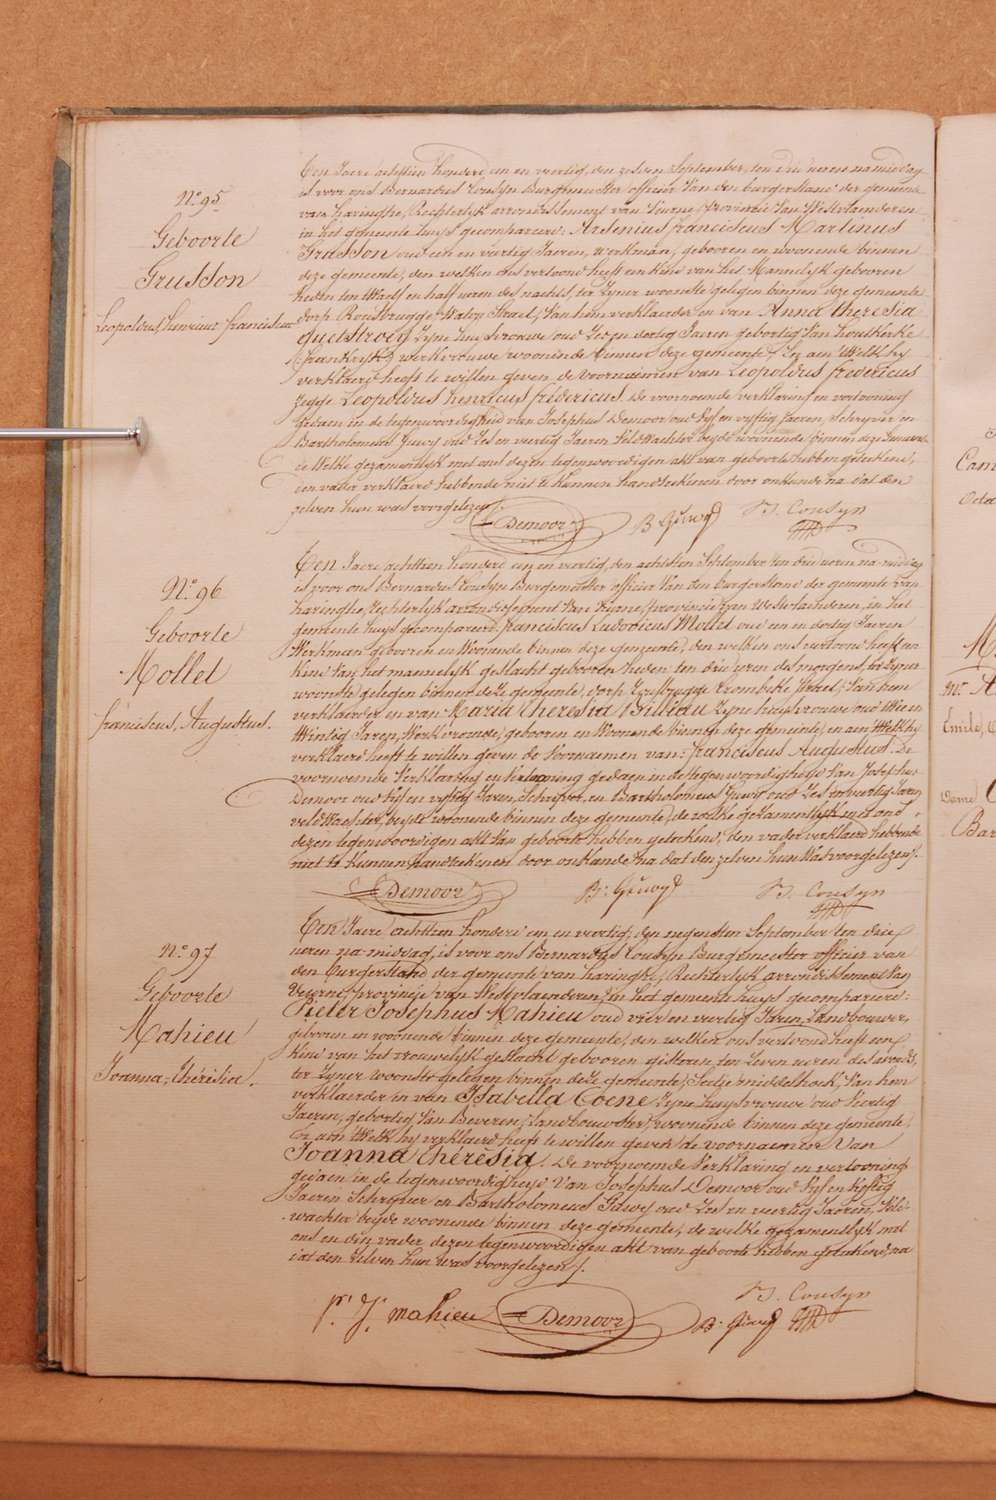 N.o 95
Geboorte
Grusson
Leopoldus, henricus franciscus
Ten Jaere achttien honderd een en veertig, den zeven September, ten drie ueren na middag
is voor ons Bernardus Cousyn Burgemeester officier Van den burgerstand der gemeente
van haringhe, Rechterlyk arrondissement van Veurne, provincie Van Westvlaenderen
in het gemeente huys gecompareerd: Arsenius franciscus Martinus
Grusson oud een en veertig Jaeren, Werkman, gebooren en woonende binnen
deze gemeente, den welken ons vertoond heeft een kind van het Mannelyk gebooren
heden ten twaelf en half ueren des nachts, ter zyner woonste gelegen binnen deze gemeente
dorp Rousbrugge Straet, Van hem verklaerder en van Anna theresia
zyne huysvrouwe oud Jaeren gebortig Van houtkerke
(frankryk) werkvrouwe woonende binnen deze gemeente, aen Welk hy
verklaerd heeft te willen geven de voornaemen van Leopoldus fredericus
zegge Leopoldus henricus fredericus. De voornoemde verklaring en vertooning
gedaen in de tegenwoordigheid van Josephus Demoor oud vyf en vyftig Jaeren, schryver en
Bartholomeus oud Zes en veertig Jaeren Veldwachter beyde woonende binnen deze gemeente
de Welke gezamentlyk met ons dezen tegenwoordigen akt van geboorte hebben geteekend,
den vader verklaerd hebbende niet te kunnen handteekenen door onkunde na dat den
zelven hun was voorgelezen.
Demoor B. B. Cousyn
N.o 96
Geboorte
Mollet
franciscus, Augustus.
Ten Jaere achttien honderd een en veertig, den achtsten September ten drie ueren na-middag
is voor ons Bernardus Cousyn Burgemeester officier Van den burgerstand der gemeente van
haringhe, Rechterlyk arrondissement Van Veurne, provincie van Westvlaenderen, in het
gemeente huys gecompareerd: franciscus Ludovicus Mollet oud een en dertig Jaeren
Werkman gebooren en Woonende binnen deze gemeente, den welken ons vertoond heeft een
kind Van het mannelyk geslacht gebooren heden ten drie uren des morgens, ter zyner
woonste gelegen binnen deze gemeente, dorp Rousbrugge Crombeke Straet, Van hem
verklaerder en van Maria theresia Billiau zyne huysvrouwe oud drie en
twintig Jaren, Werkvrouwe, gebooren en Woonende binnen deze gemeente, en aen Welk hy
verklaerd heeft te willen geven de Voornaemen van: franciscus Augustus. De
voornoemde Verklaring en Vertooning gedaen in de tegenwoordigheyd Van Josephus
Demoor oud vyf en vyftig Jaren, Schryver, en Bartholomeus oud Zes en veertig Jaren
veldwachter, beyde woonende binnen deze gemeente, de welke gezamentlyk met ons
dezen tegenwoordigen akt Van geboorte hebben geteekend, den vader verklaerd hebbende
niet te kunnen handteekenen door onkunde na dat den zelven hun Was voorgelezen.
Demoor B. B. Cousyn
N.o 97
Geboorte
Mahieu
Joanna, thérèsia.
Ten Jaere achttien honderd een en veertig, den negensten September ten drie
ueren na-middag, is voor ons Bernardus Cousyn Burgemeester officier van
den burgerstand der gemeente van haringhe, Rechterlyk arrondissement Van
Veurne, provincie van Westvlaenderen, in het gemeente huys gecompareerd:
Pieter Josephus Mahieu oud vier en veertig Jaren, Landbouwer,
gebooren en woonende binnen deze gemeente, den welken ons vertoond heeft een
kind van het vrouwelyk geslacht gebooren gisteren ten Zeven ueren des avonds,
ter zyner woonste gelegen binnen deze gemeente, Sectie middelhoek, Van hem
verklaerder en van Isabella Coene zyne huysvrouwe oud
Jaeren, gebortig Van Beveren, Landbouwster, woonende binnen deze gemeente,
En aen Welk hy verklaerd heeft te willen geven de voornaemen Van
Joanna thérèsia. De voornoemde Verklaring en vertooning
gedaen in de tegenwoordigheyd Van Josephus Demoor oud Vyf en Vyftig
Jaeren Schryver en Bartholomeus oud Zes en veertig Jaeren, Veld-
wachter beyde woonende binnen deze gemeente, de welke gezamentlyk met
ons en den vader dezen tegenwoordigen akt van geboorte hebben geteekend, na
dat den Zelven hun was voorgelezen.
p.r J. mahieu Demoor B. B. Cousyn